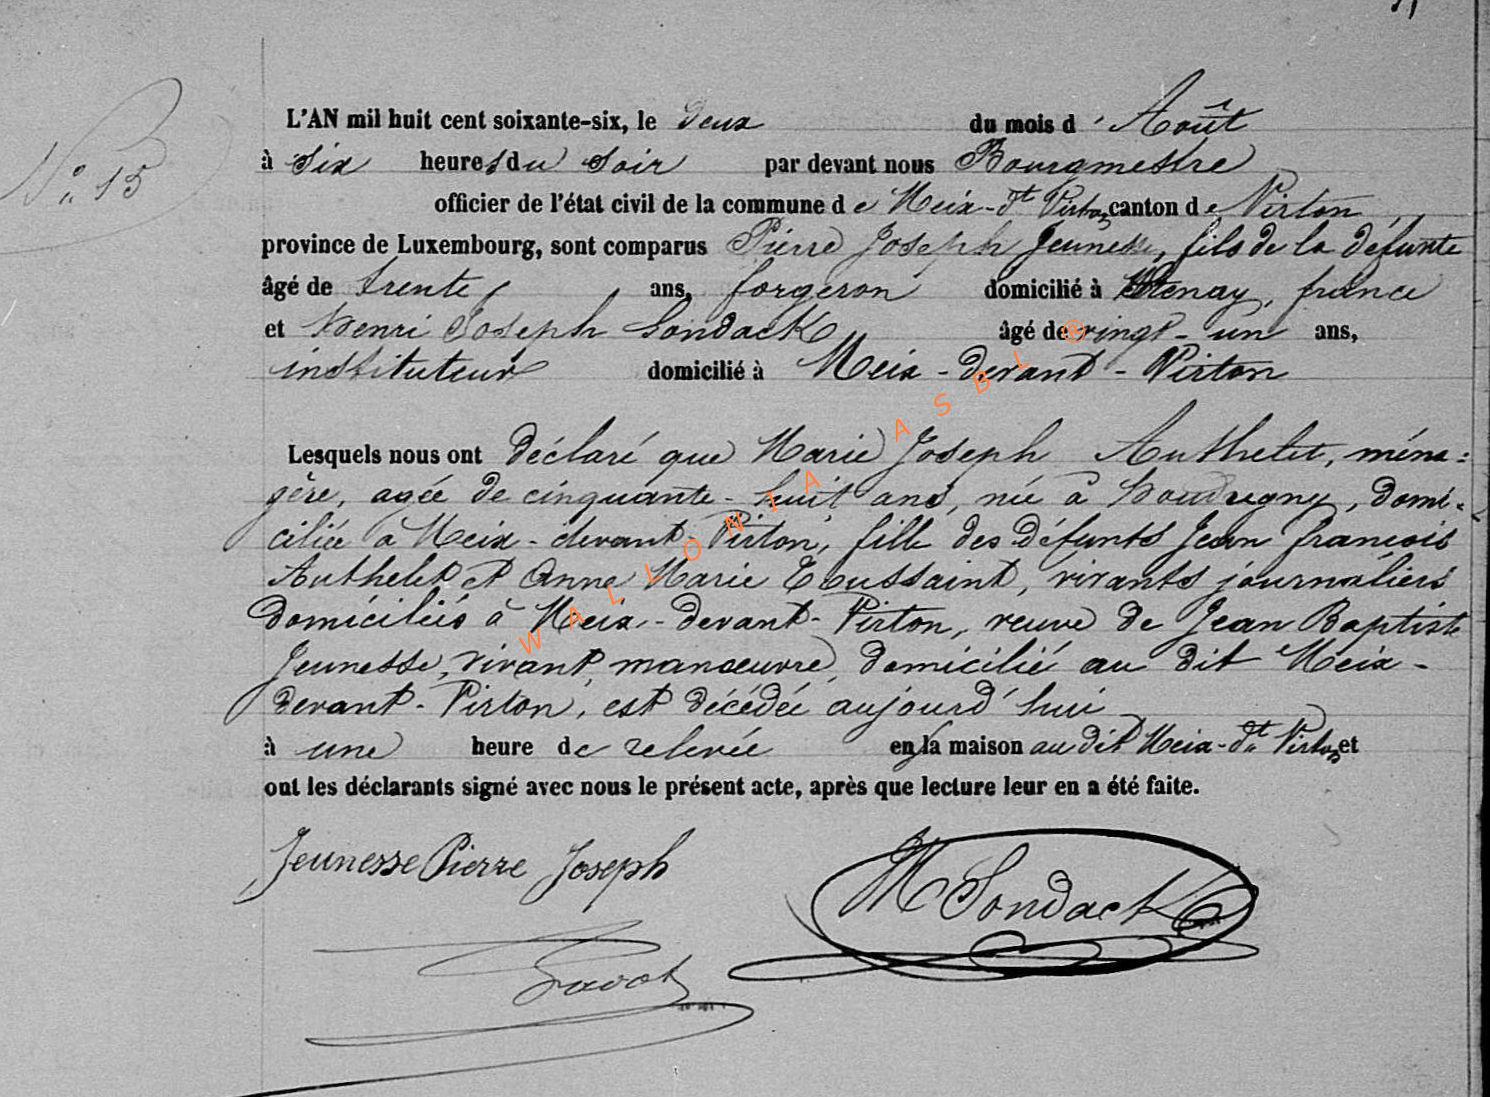 N° 15
L'AN mil huit cent soixante-six, le deux du mois d' Août
à six heures du soir par devant nous Bourgmestre
officier de l'état civil de la commune de Meix-dt Virton canton de Virton
province de Luxembourg, sont comparus Pierre Joseph Jeunesse, fils de la défunte
âgé de trente ans, forgeron domicilié à Stenay, france
et Henri Joseph Sondack âgé de vingt-un ans,
instituteur domicilié à Meix-devant-Virton
Lesquels nous ont déclaré que Marie Joseph Authelet, ména=
gère, agée de cinquante-huit ans, née à, domi-
ciliée à Meix-devant-Virton, fille des défunts Jean francois
Authelet et Anne Marie Toussaint, vivants journaliers
domiciliés à Meix-devant-Virton, veuve de Jean Baptiste
Jeunesse, vivant, manœuvre, domicilié au dit Meix-
devant-Virton, est décédée aujourd'hui
à une heure de relevée en la maison au dit Meix-dt Virton et
ont les déclarants signé avec nous le présent acte, après que lecture leur en a été faite.
Jeunesse Pierre Joseph
H Sondack
WALLONIA ASBL ®